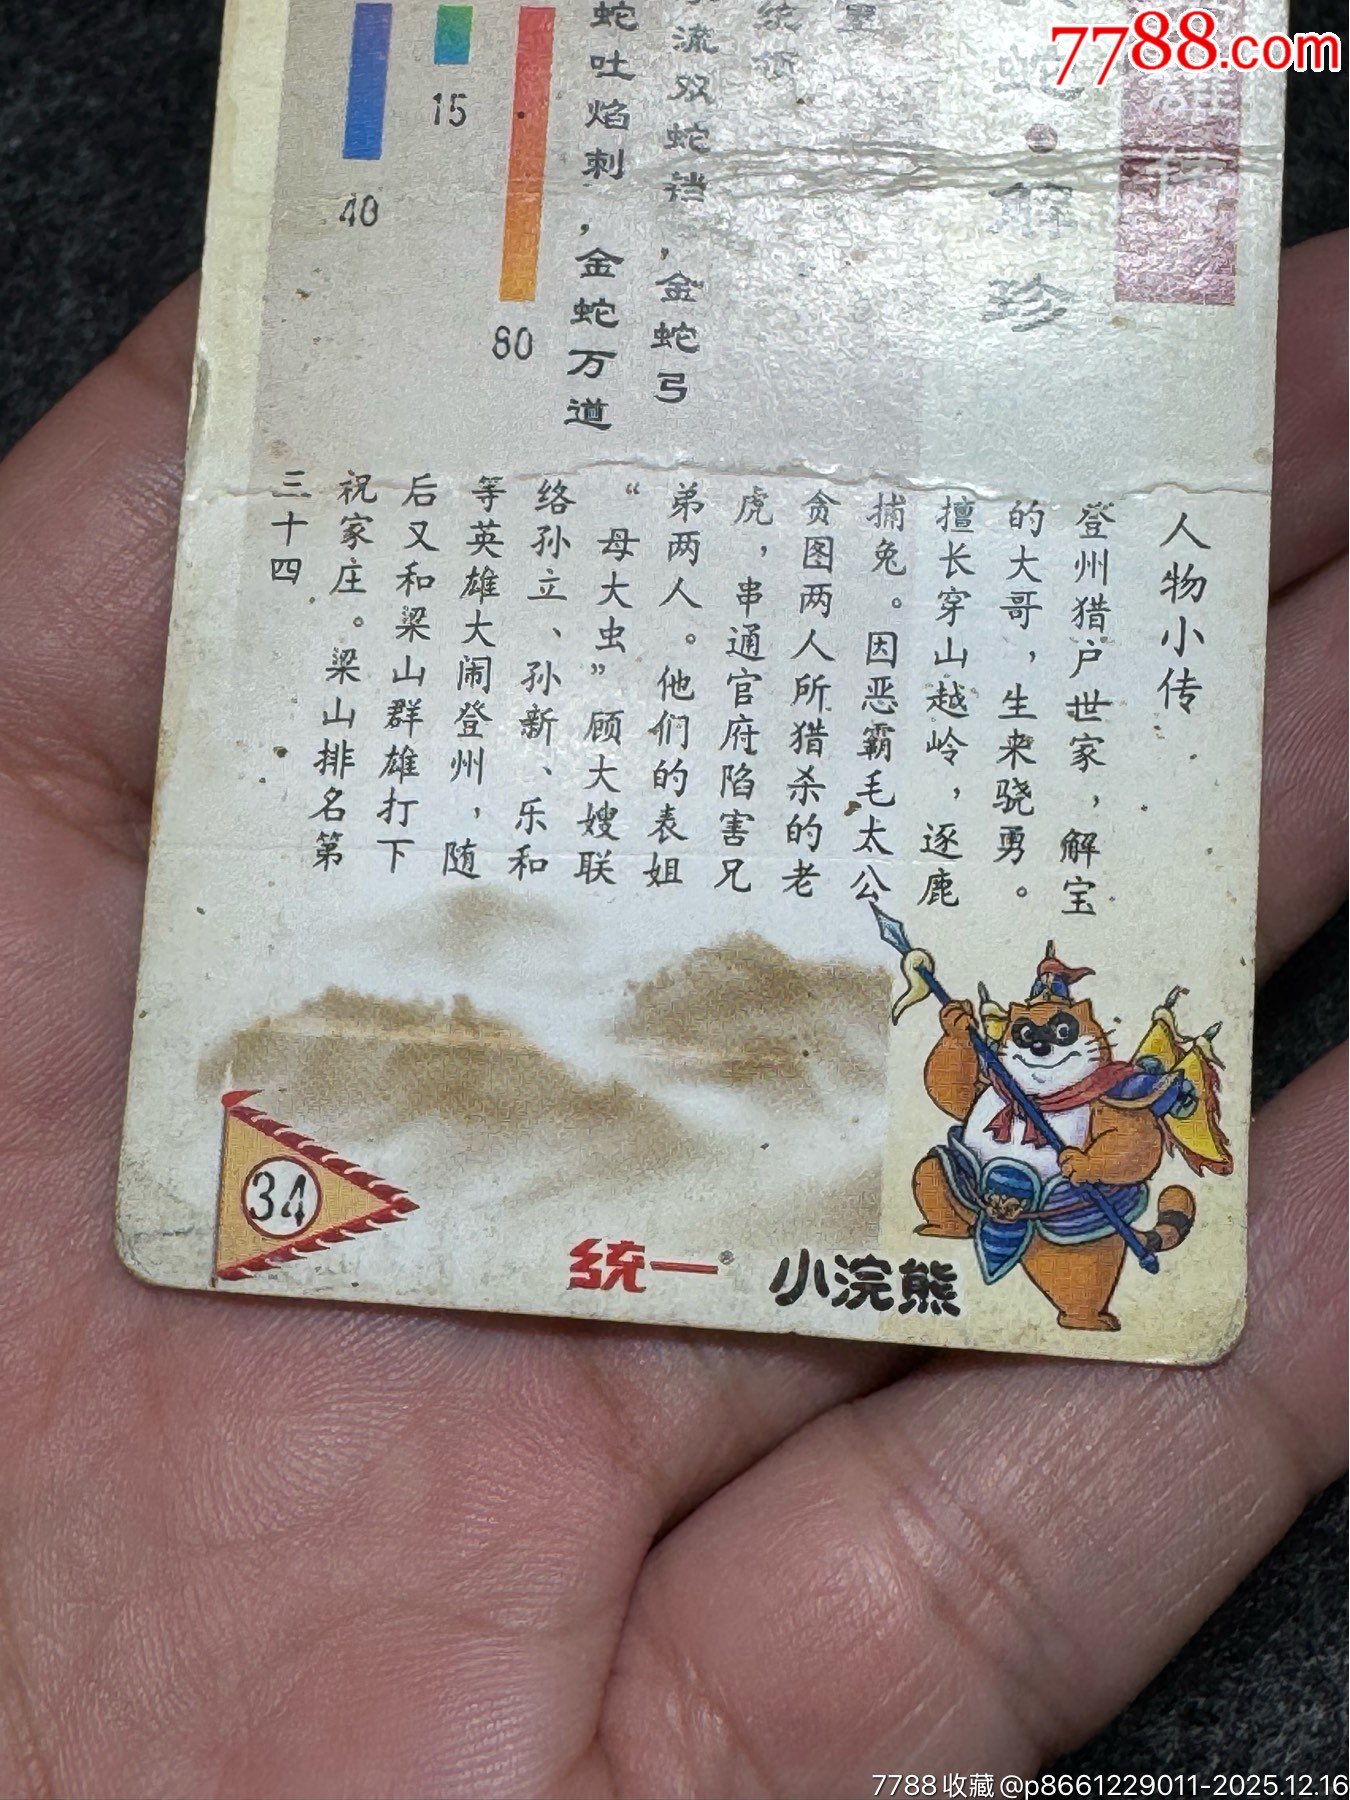 7788.com
蛇·解珍
流双蛇铛，金蛇弓
蛇吐焰刺，金蛇万道
80
15
40
人物小传
登州猎户世家，解宝
的大哥，生来骁勇。
擅长穿山越岭，逐鹿
捕兔。因恶霸毛太公
贪图两人所猎杀的老
虎，串通官府陷害兄
弟两人。他们的表姐
“母大虫”顾大嫂联
络孙立、孙新、乐和
等英雄大闹登州，随
后又和梁山群雄打下
祝家庄。梁山排名第
三十四
34
统一®
小浣熊
7788收藏@p8661229011-2025.12.16